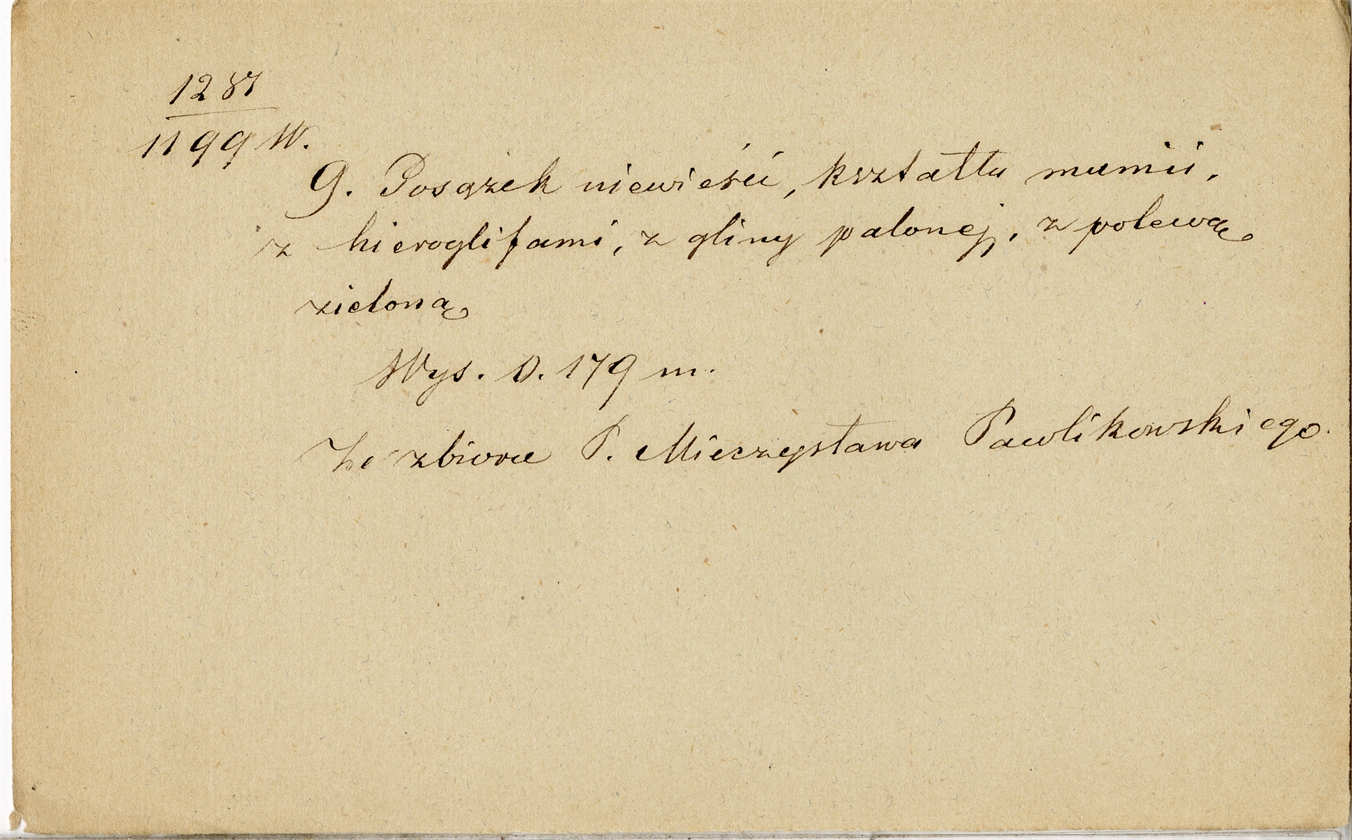 1287
1199 W.
9. Posążek niewieści, kształtu mumii,
z hieroglifami, z gliny palonej, z polewą
zieloną
Wys. 0.179 m.
Ze zbioru P. Mieczysława Pawlikowskiego.